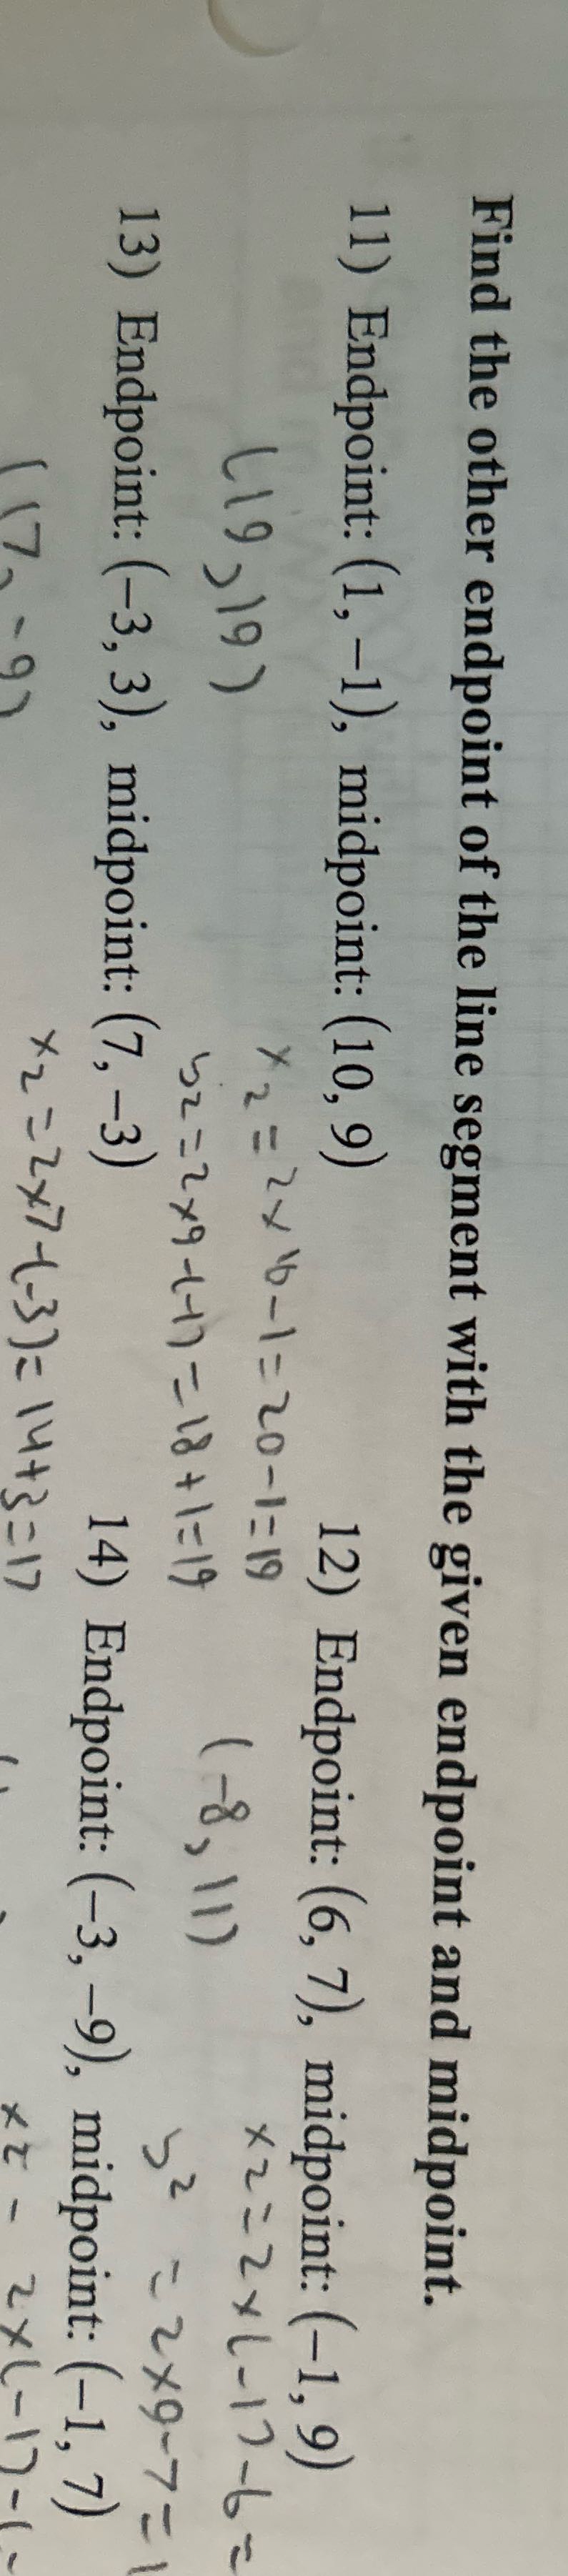 Find the other endpoint of the line segment with the given endpoint and midpoint.
11) Endpoint: (1, −1), midpoint: (10, 9)
(19, 19)
x2 = 2×10-1 = 20-1=19
y2 = 2×9-(-1) = 18+1=19
12) Endpoint: (6, 7), midpoint: (−1, 9)
(-8, 11)
x2 = 2×(-1)-6 =
y2 = 2×9-7 = 1
13) Endpoint: (−3, 3), midpoint: (7, −3)
(17, -9)
x2 = 2×7-(-3) = 14+3=17
14) Endpoint: (−3, −9), midpoint: (−1, 7)
x2 = 2×(-1)-(-